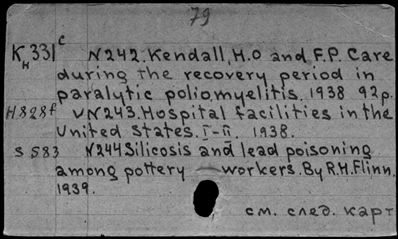 79
KH331c N242. Kendall, H.O and F.P. Care
during the recovery period in
paralytic poliomyelitis. 1938 92p.
H828f VN243. Hospital facilities in the
United States. I-II. 1938.
S583 N244 Silicosis and lead poisoning
among pottery workers. By R.H. Flinn.
1939.
см. след. карт